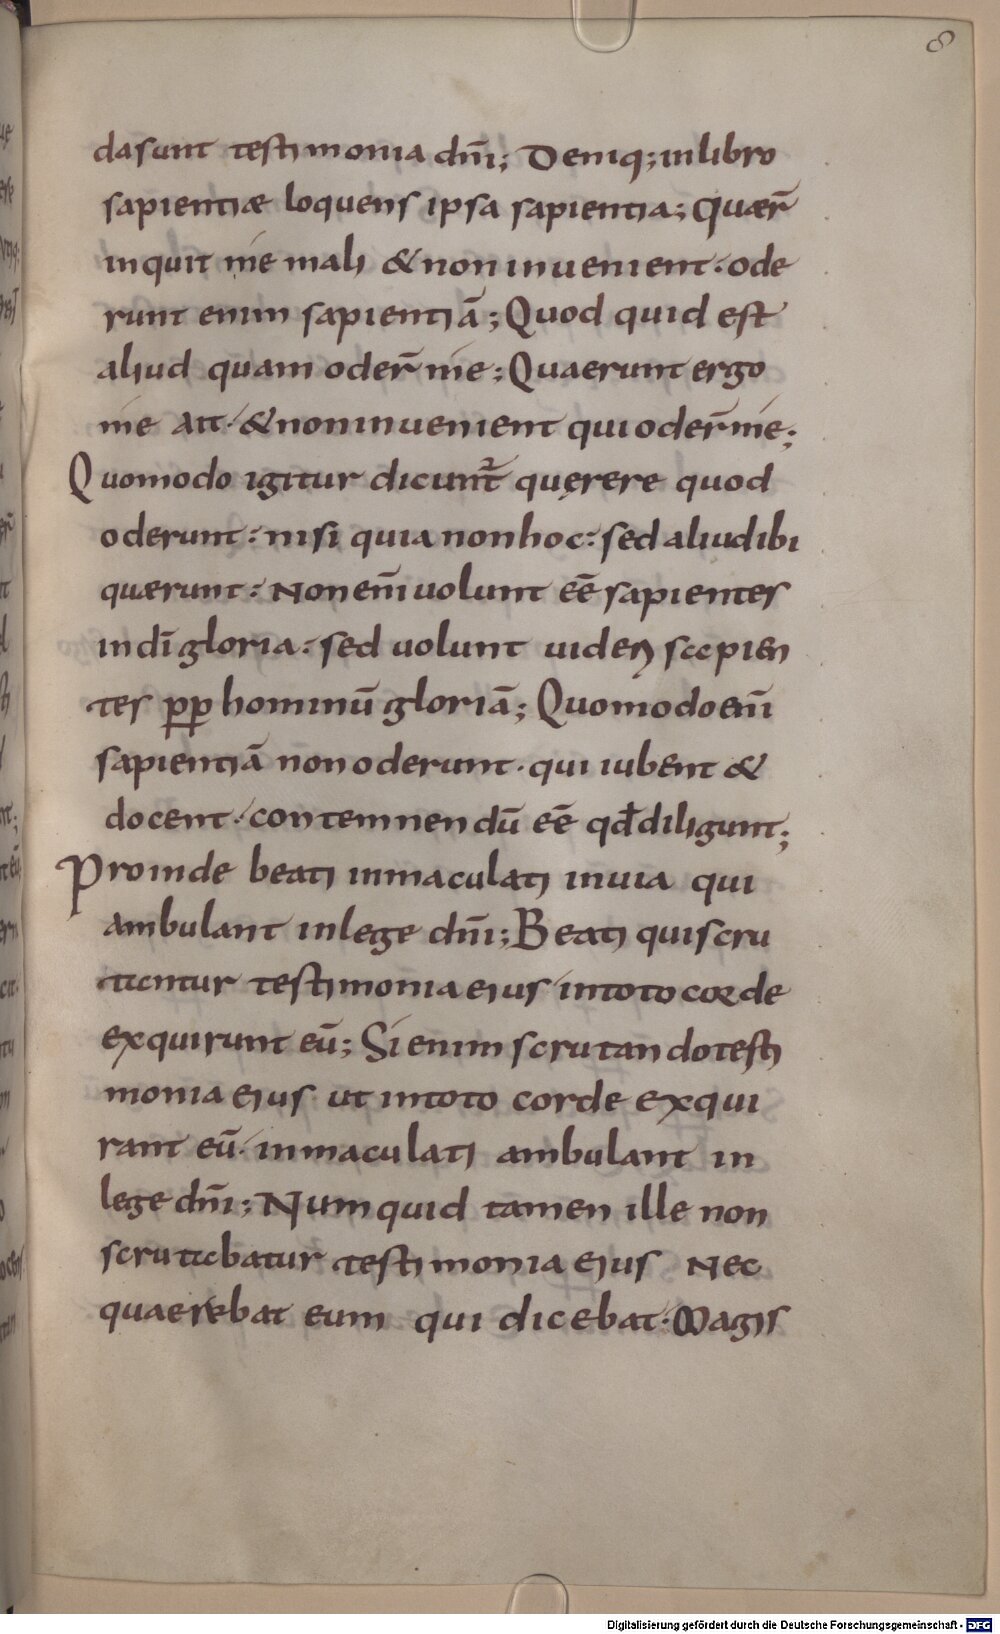 8
dasunt testimonia dn̄i; Deniq; in libro
sapientiæ loquens ipsa sapientia; Quær̄
inquit me mali & non inuenient. ode
runt enim sapientiā; Quod quid est
aliud quam oder̄ me; Quaerunt ergo
me ait. & non inuenient qui oder̄ me;
Quomodo igitur dicunt᷑ quęrere quod
oderunt: nisi quia non hoc: sed aliud ibi
quærunt: Non en̄i uolunt eē sapientes
in dī gloria: sed uolunt uideri sapien
tes pp hominū gloriā; Quomodo en̄i
sapientiā non oderunt. qui iubent &
docent. contemnendū eē qđ diligunt;
Proinde beati inmaculati in uia qui
ambulant in lege dn̄i; Beati qui scru
tantur testimonia eius in toto corde
exquirunt eū; Si enim scrutando testi
monia eius ut in toto corde exqui
rant eū. inmaculati ambulant in
lege dn̄i; Numquid tamen ille non
scrutabatur testimonia eius Nec
quaerebat eum qui dicebat. Magis
Digitalisierung gefördert durch die Deutsche Forschungsgemeinschaft - DFG